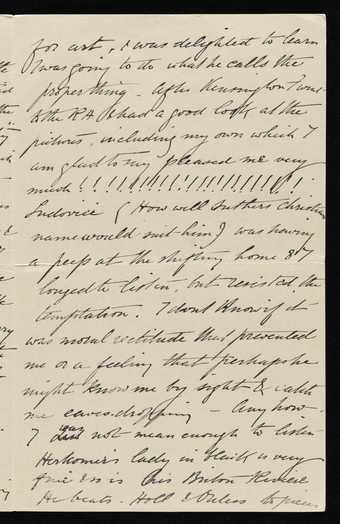 for art, & was delighted to learn
I was going to do what he calls the
proper thing. After Kensington I went
to the RA & had a good look at the
pictures, including my own which I
am glad to say pleased me very
much!!!!!!!!!!!!!!!!!!
Ludovici (How well Suthers Christian
name would suit him) was having
a peep at the shifting home & I
longed to listen, but resisted the
temptation. I dont know if it
was moral rectitude that prevented
me or a feeling that perhaps he
might know me by sight & catch
me eaves-dropping – Any how
I was not mean enough to listen
Herkomer's lady in black is very
fine & so is his Briton Riviere
He beats Holl & Ouless to pieces